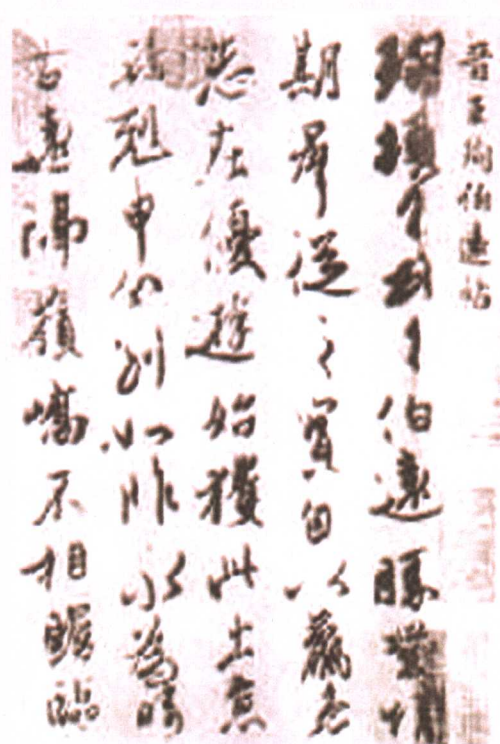 晉王珣伯遠帖
珣頓首頓首伯遠勝業情
期羣從之寶自以羸患
志在優遊始獲此出意
不剋申分別如昨永為疇
古遠隔嶺嶠不相瞻臨